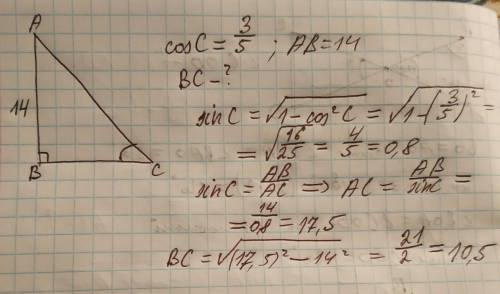 A
14
B
C
cosC = 3/5 ; AB = 14
BC - ?
sinC = √(1 - cos²C) = √(1 - (3/5)²) =
= √(16/25) = 4/5 = 0,8
sinC = AB/AC ⟹ AC = AB/sinC =
= 14/0,8 = 17,5
BC = √((17,5)² - 14²) = 21/2 = 10,5